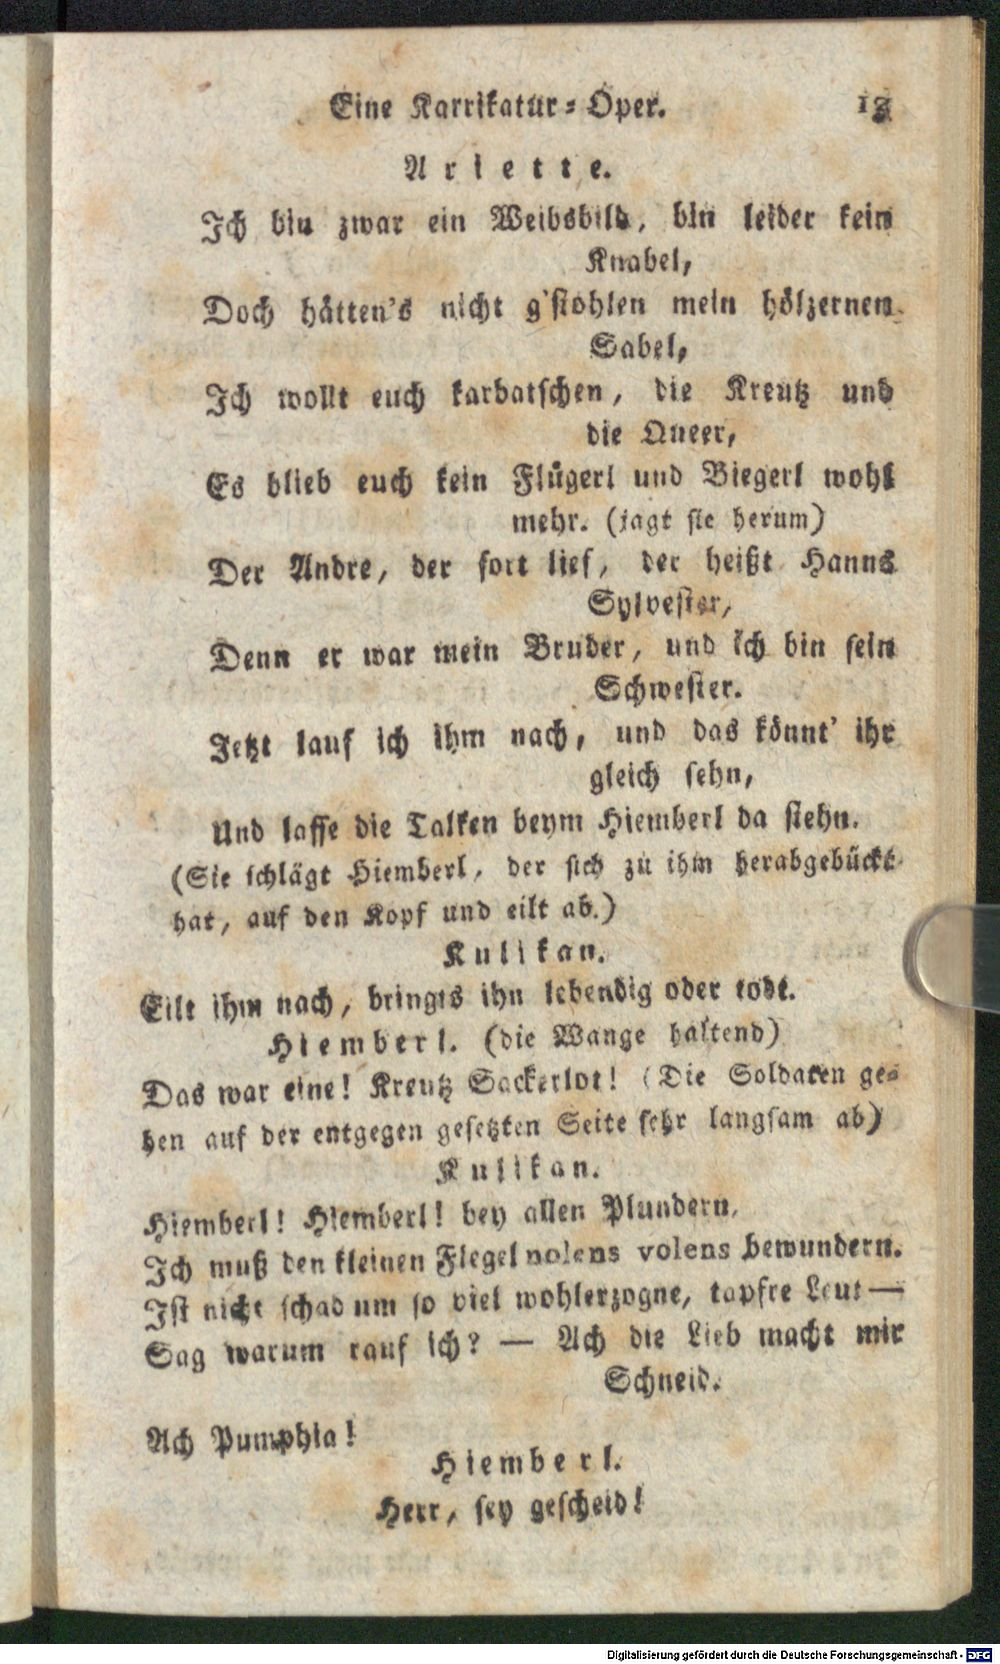 Eine Karrikatur-Oper. 13
Ariette.
Ich bin zwar ein Weibsbild, bin leider kein
Knabel,
Doch hätten's nicht g'stohlen mein hölzernen
Sabel,
Ich wollt euch karbatschen, die Kreutz und
die Queer,
Es blieb euch kein Flügerl und Biegerl wohl
mehr. (jagt sie herum)
Der Andre, der fort lief, der heißt Hanns
Sylvester,
Denn er war mein Bruder, und ich bin sein
Schwester.
Jetzt lauf ich ihm nach, und das könnt' ihr
gleich sehn,
Und lasse die Talken beym Hiemberl da stehn.
(Sie schlägt Hiemberl, der sich zu ihm herabgebückt
hat, auf den Kopf und eilt ab.)
Kulikan.
Eilt ihm nach, bringts ihn lebendig oder todt.
Hiemberl. (die Wange haltend)
Das war eine! Kreutz Sackerlot! (Die Soldaten ge-
hen auf der entgegen gesetzten Seite sehr langsam ab)
Kulikan.
Hiemberl! Hiemberl! bey allen Plundern,
Ich muß den kleinen Flegel nolens volens bewundern.
Ist nicht schad um so viel wohlerzogne, tapfre Leut —
Sag warum rauf ich? — Ach die Lieb macht mir
Schneid.
Ach Pumphia!
Hiemberl.
Herr, sey gescheid!
Digitalisierung gefördert durch die Deutsche Forschungsgemeinschaft - DFG